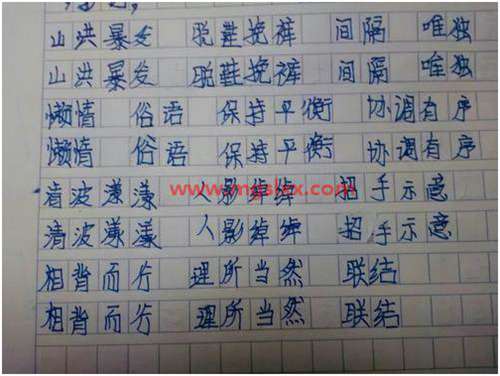 山洪暴发 脱鞋挽裤 间隔 唯独
山洪暴发 脱鞋挽裤 间隔 唯独
懒惰 俗语 保持平衡 协调有序
懒惰 俗语 保持平衡 协调有序
清波漾漾 人影绰绰 招手示意
www.mgslzx.com
清波漾漾 人影绰绰 招手示意
相背而行 理所当然 联结
相背而行 理所当然 联结